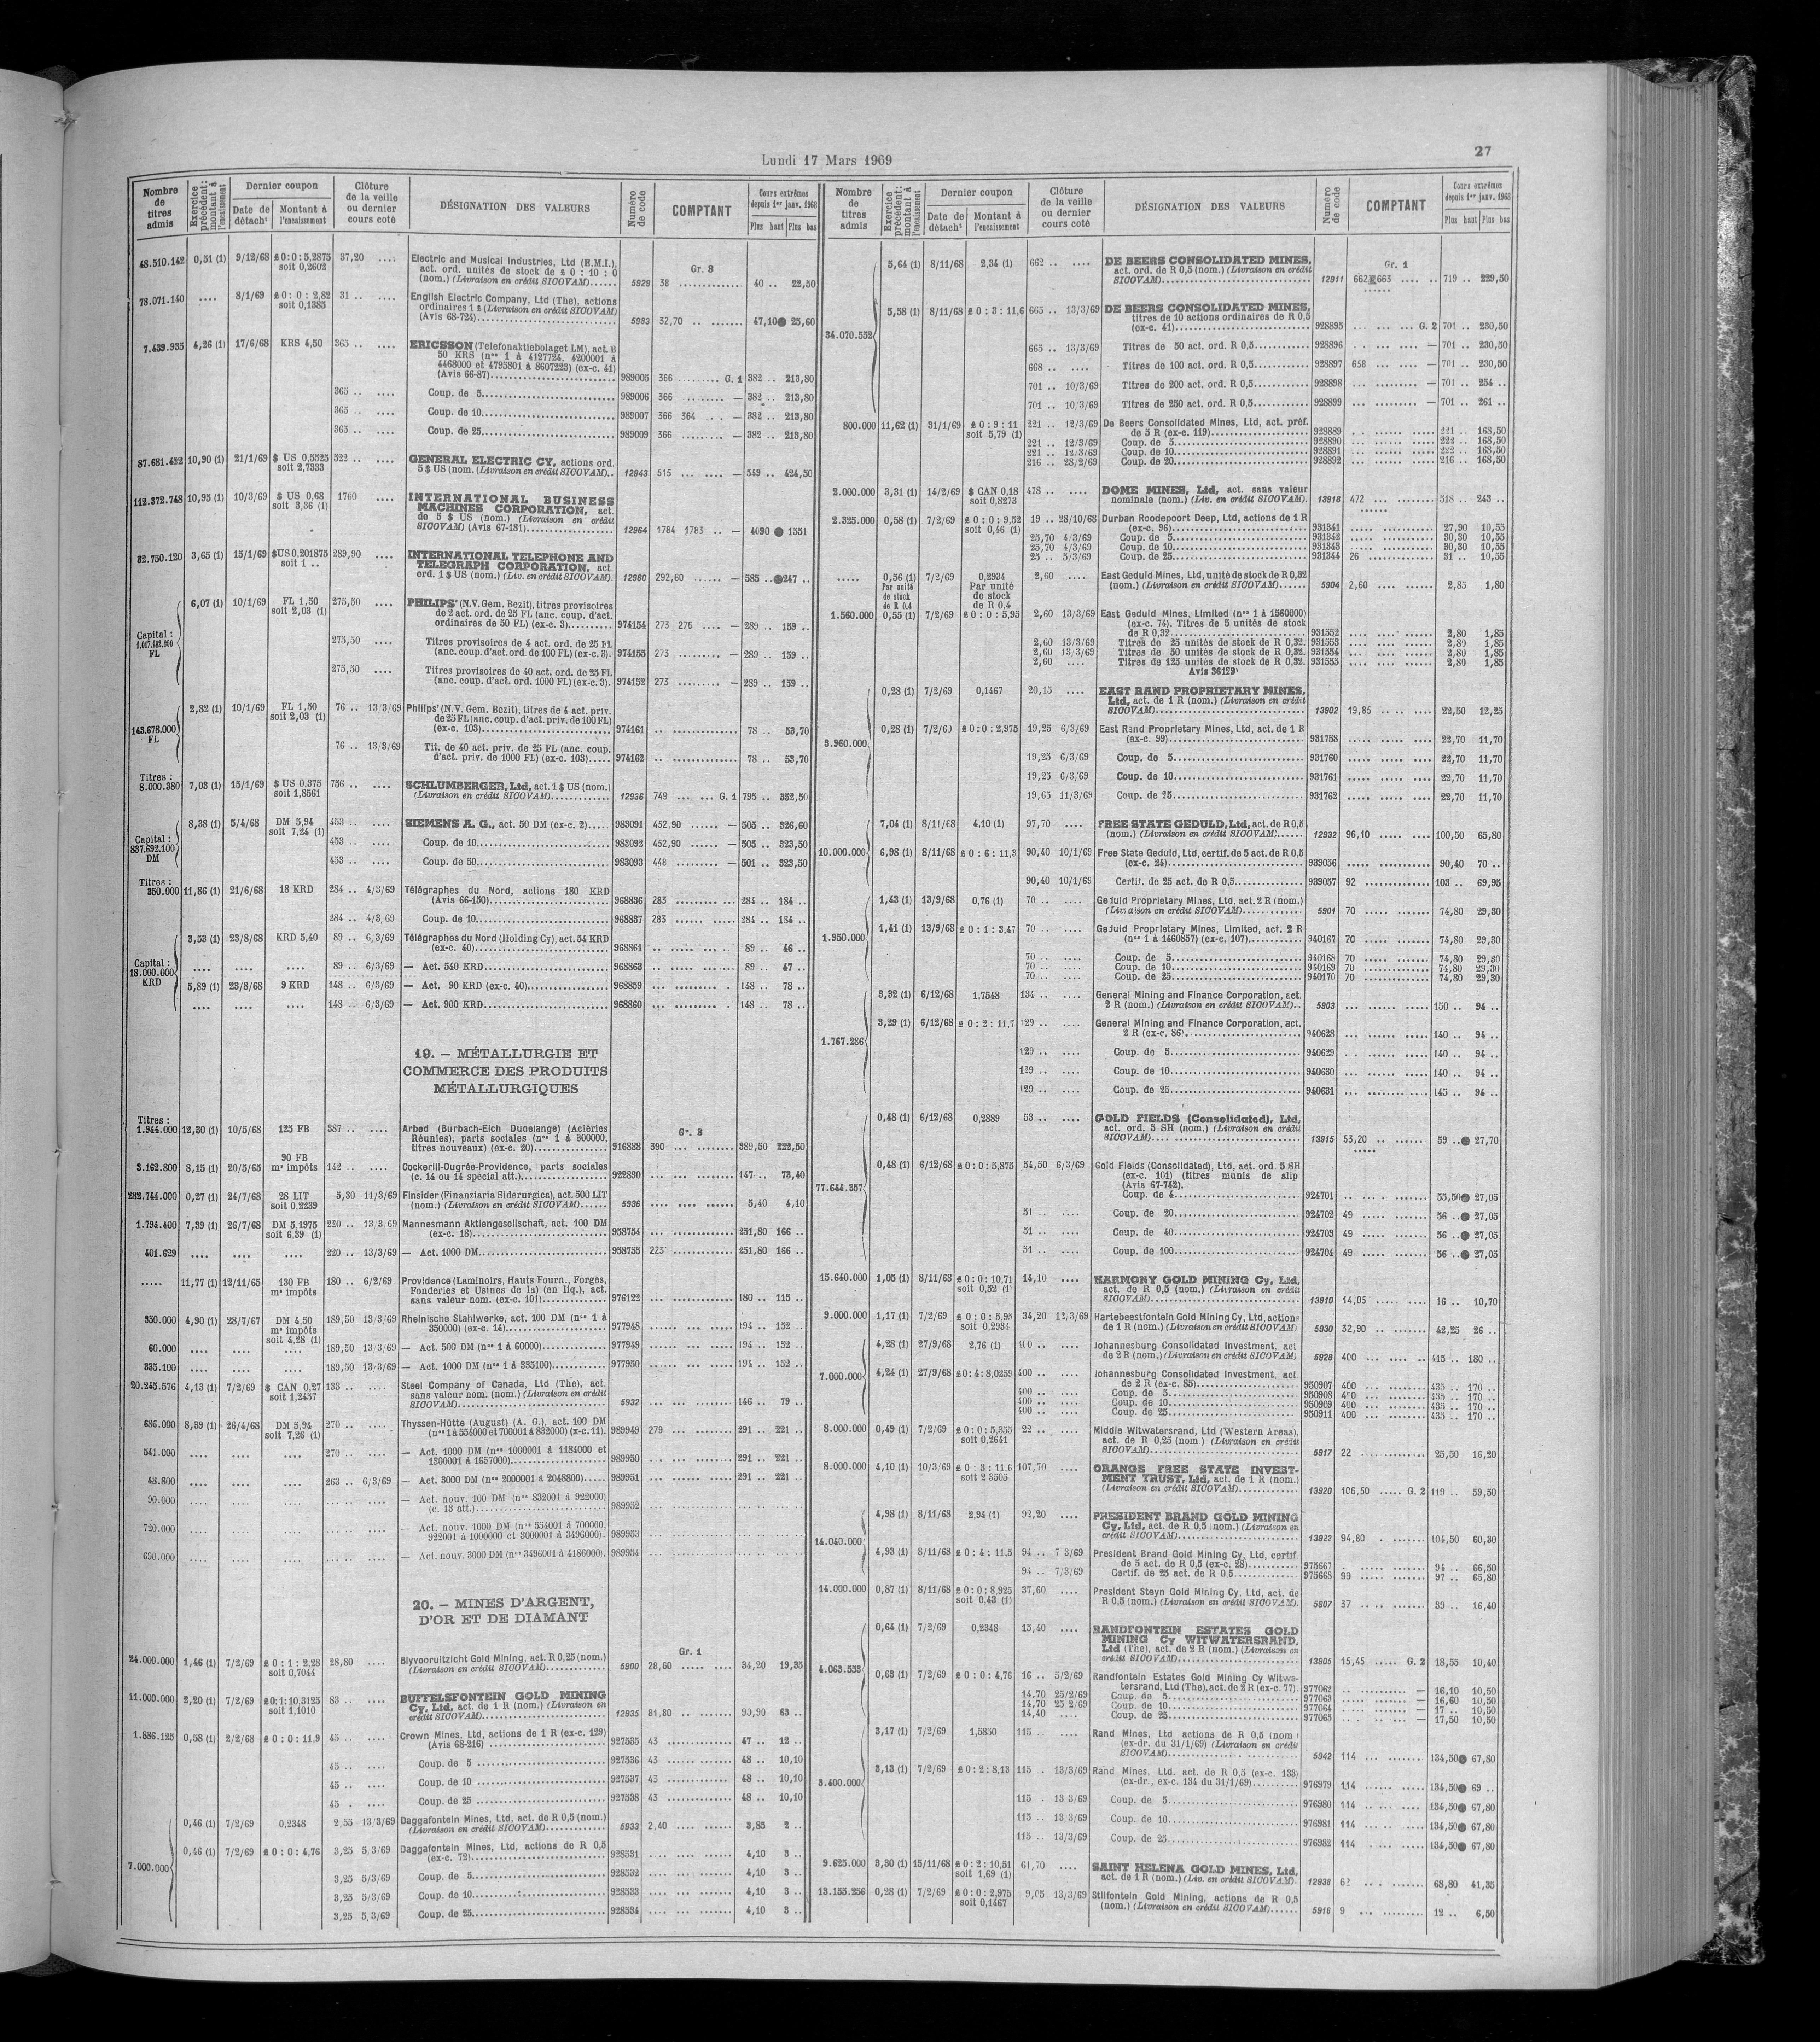 Lundi 17 Mars 1969
27
Nombre de titres admis | Exercice précédent : montant à l'encaissement | Dernier coupon | Date de détacht | Montant à l'encaissement | Clôture de la veille ou dernier cours coté | DÉSIGNATION DES VALEURS | Numéro de code | COMPTANT | Cours extrêmes depuis 1er janv. 1968 | Plus haut | Plus bas
48.510.142 0,51 (1) 9/12/68 £ 0:0:5,2875 37,20 .... Electric and Musical Industries, Ltd (E.M.I.), Gr. 8
soit 0,2602 act. ord. unités de stock de £ 0 : 10 : 0
(nom.) (Livraison en crédit SICOVAM)...... 5929 38 40 .. 22,50
78.071.140 .... 8/1/69 £ 0 : 0 : 2,82 31 .. .... English Electric Company, Ltd (The), actions
soit 0,1385 ordinaires 1 £ (Livraison en crédit SICOVAM)
(Avis 68-724) 5983 32,70 47,10 25,60
7.439.935 4,26 (1) 17/6/68 KRS 4,50 365 .. .... ERICSSON (Telefonaktiebolaget LM), act. B
50 KRS (nos 1 à 4127724, 4200001 à
4468000 et 4795801 à 8607223) (ex-c. 41)
(Avis 66-87) 989005 366 G. 1 382 .. 213,80
365 .. .... Coup. de 5 989006 366 — 382 .. 213,80
365 .. .... Coup. de 10 989007 366 364 — 382 .. 213,80
365 .. .... Coup. de 25 989009 366 — 382 .. 213,80
87.681.422 10,90 (1) 21/1/69 $ US 0,5525 522 .. .... GENERAL ELECTRIC CY, actions ord.
soit 2,7333 5 $ US (nom. (Livraison en crédit SICOVAM).. 12943 515 — 549 .. 424,50
112.372.748 10,95 (1) 10/3/69 $ US 0,68 1760 .... INTERNATIONAL BUSINESS
soit 3,36 (1) MACHINES CORPORATION, act.
de 5 $ US (nom.) (Livraison en crédit
SICOVAM) (Avis 67-181) 12964 1784 1783 .. — 4090 1551
32.750.120 3,65 (1) 15/1/69 $US 0,201875 289,90 .... INTERNATIONAL TELEPHONE AND
soit 1 .. TELEGRAPH CORPORATION, act
ord. 1 $ US (nom.) (Liv. en crédit SICOVAM). 12960 292,60 — 585 .. 247 ..
Capital : 1.017.182.000 FL
6,07 (1) 10/1/69 FL 1,50 275,50 .... PHILIPS' (N.V. Gem. Bezit), titres provisoires
soit 2,03 (1) de 2 act. ord. de 25 FL (anc. coup. d'act.
ordinaires de 50 FL) (ex-c. 3) 974154 273 276 — 289 .. 159 ..
275,50 .... Titres provisoires de 4 act. ord. de 25 FL
(anc. coup. d'act. ord de 100 FL) (ex-c. 3). 974155 273 — 289 .. 159 ..
275,50 .... Titres provisoires de 40 act. ord. de 25 FL
(anc. coup. d'act. ord. 1000 FL) (ex-c. 3). 974152 273 — 289 .. 159 ..
143.678.000 FL
2,82 (1) 10/1/69 FL 1,50 76 .. 13/3/69 Philips' (N.V. Gem. Bezit), titres de 4 act. priv.
soit 2,03 (1) de 25 FL (anc. coup. d'act. priv. de 100 FL)
(ex-c. 103) 974161 78 .. 53,70
76 .. 13/3/69 Tit. de 40 act. priv. de 25 FL (anc. coup.
d'act. priv. de 1000 FL) (ex-c. 103) 974162 78 .. 53,70
Titres :
8.000.380 7,03 (1) 15/1/69 $ US 0,375 756 .. .... SCHLUMBERGER, Ltd, act. 1 $ US (nom.)
soit 1,8561 (Livraison en crédit SICOVAM) 12936 749 G. 1 795 .. 352,50
Capital : 837.692.100 DM
8,38 (1) 5/4/68 DM 5,94 453 .. .... SIEMENS A. G., act. 50 DM (ex-c. 2) 983091 452,90 — 505 .. 326,60
soit 7,24 (1)
453 .. .... Coup. de 10 983092 452,90 — 505 .. 323,50
453 .. .... Coup. de 50 983093 448 — 501 .. 323,50
Titres :
350.000 11,86 (1) 21/6/68 18 KRD 284 .. 4/3/69 Télégraphes du Nord, actions 180 KRD
(Avis 66-150) 968836 283 284 .. 184 ..
284 .. 4/3/69 Coup. de 10 968837 283 284 .. 184 ..
Capital : 18.000.000 KRD
3,53 (1) 23/8/68 KRD 5,40 89 .. 6/3/69 Télégraphes du Nord (Holding Cy), act. 54 KRD
(ex-c. 40) 968861 89 .. 46 ..
.... .... .... 89 .. 6/3/69 — Act. 540 KRD 968863 89 .. 47 ..
5,89 (1) 23/8/68 9 KRD 148 .. 6/3/69 — Act. 90 KRD (ex-c. 40) 968859 148 .. 78 ..
.... .... .... 148 .. 6/3/69 — Act. 900 KRD 968860 148 .. 78 ..
19. — MÉTALLURGIE ET
COMMERCE DES PRODUITS
MÉTALLURGIQUES
Titres :
1.944.000 12,30 (1) 10/5/68 125 FB 387 .. .... Arbed (Burbach-Eich Dudelange) (Aciéries Gr. 8
Réunies), parts sociales (nos 1 à 300000,
titres nouveaux) (ex-c. 20) 916888 390 389,50 222,50
3.162.800 8,15 (1) 20/5/65 90 FB 142 .. .... Cockerill-Ougrée-Providence, parts sociales
ms impôts (c. 14 ou 14 spécial att.) 922890 147 .. 73,40
282.744.000 0,27 (1) 24/7/68 28 LIT 5,30 11/3/69 Finsider (Finanziaria Siderurgica), act. 500 LIT
soit 0,2239 (nom.) (Livraison en crédit SICOVAM)...... 5936 5,40 4,10
1.794.400 7,39 (1) 26/7/68 DM 5,1975 220 .. 13/3/69 Mannesmann Aktiengesellschaft, act. 100 DM
soit 6,39 (1) (ex-c. 18) 958754 251,80 166 ..
401.629 .... .... .... 220 .. 13/3/69 — Act. 1000 DM 958755 223 251,80 166 ..
..... 11,77 (1) 12/11/65 130 FB 180 .. 6/2/69 Providence (Laminoirs, Hauts Fourn., Forges,
ms impôts Fonderies et Usines de la) (en liq.), act.
sans valeur nom. (ex-c. 101) 976122 180 .. 115 ..
350.000 4,90 (1) 28/7/67 DM 4,50 189,50 13/3/69 Rheinische Stahlwerke, act. 100 DM (nos 1 à
ms impôts 350000) (ex-c. 14) 977948 194 .. 152 ..
soit 4,28 (1)
60.000 .... .... .... 189,50 13/3/69 — Act. 500 DM (nos 1 à 60000) 977949 194 .. 152 ..
335.100 .... .... .... 189,50 13/3/69 — Act. 1000 DM (nos 1 à 335100) 977950 194 .. 152 ..
20.245.576 4,13 (1) 7/2/69 $ CAN 0,27 133 .. .... Steel Company of Canada, Ltd (The), act.
soit 1,2457 sans valeur nom. (nom.) (Livraison en crédit
SICOVAM) 5932 146 .. 79 ..
686.000 8,39 (1) 26/4/68 DM 5,94 270 .. .... Thyssen-Hütte (August) (A. G.), act. 100 DM
soit 7,26 (1) (nos 1 à 554000 et 700001 à 832000) (x-c. 11). 989949 279 291 .. 221 ..
541.000 .... .... .... 270 .. .... — Act. 1000 DM (nos 1000001 à 1184000 et
1300001 à 1657000) 989950 291 .. 221 ..
48.800 .... .... .... 263 .. 6/3/69 — Act. 3000 DM (nos 2000001 à 2048800) 989951 291 .. 221 ..
90.000 .... .... .... — Act. nouv. 100 DM (nos 832001 à 922000)
(c. 13 att.) 989952
720.000 .... .... .... — Act. nouv. 1000 DM (nos 554001 à 700000,
922001 à 1000000 et 3000001 à 3496000). 989953
690.000 .... .... .... — Act. nouv. 3000 DM (nos 3496001 à 4186000). 989954
20. — MINES D'ARGENT,
D'OR ET DE DIAMANT
Gr. 1
24.000.000 1,46 (1) 7/2/69 £ 0 : 1 : 2,28 28,80 .... Blyvooruitzicht Gold Mining, act. R 0,25 (nom.)
soit 0,7044 (Livraison en crédit SICOVAM) 5900 28,60 34,20 19,35
11.000.000 2,20 (1) 7/2/69 £0:1:10,3125 83 .. .... BUFFELSFONTEIN GOLD MINING
soit 1,1010 Cy, Ltd, act. de 1 R (nom.) (Livraison en
crédit SICOVAM) 12935 81,80 90,90 63 ..
1.886.125 0,58 (1) 2/2/68 £ 0 : 0 : 11,9 45 .. .... Crown Mines, Ltd, actions de 1 R (ex-c. 129)
(Avis 68-216) 927535 43 47 .. 12 ..
45 .. .... Coup. de 5 927536 43 48 .. 10,10
45 .. .... Coup. de 10 927537 43 48 .. 10,10
45 . .... Coup. de 25 927538 43 48 .. 10,10
7.000.000
0,46 (1) 7/2/69 0,2348 2,55 13/3/69 Daggafontein Mines, Ltd, act. de R 0,5 (nom.)
(Livraison en crédit SICOVAM) 5933 2,40 3,85 2 ..
0,46 (1) 7/2/69 £ 0 : 0 : 4,76 3,25 5/3/69 Daggafontein Mines, Ltd, actions de R 0,5
(ex-c. 72) 928531 4,10 3 ..
3,25 5/3/69 Coup. de 5 928532 4,10 3 ..
3,25 5/3/69 Coup. de 10 928533 4,10 3 ..
3,25 5/3/69 Coup. de 25 928534 4,10 3 ..
Nombre de titres admis | Exercice précédent : montant à l'encaissement | Dernier coupon | Date de détacht | Montant à l'encaissement | Clôture de la veille ou dernier cours coté | DÉSIGNATION DES VALEURS | Numéro de code | COMPTANT | Cours extrêmes depuis 1er janv. 1968 | Plus haut | Plus bas
34.070.552
5,64 (1) 8/11/68 2,34 (1) 662 .. .... DE BEERS CONSOLIDATED MINES, Gr. 1
act. ord. de R 0,5 (nom.) (Livraison en crédit
SICOVAM) 12911 662 663 719 .. 229,50
5,58 (1) 8/11/68 £ 0 : 3 : 11,6 665 .. 13/3/69 DE BEERS CONSOLIDATED MINES,
titres de 10 actions ordinaires de R 0,5
(ex-c. 41) 928895 G. 2 701 .. 230,50
665 .. 13/3/69 Titres de 50 act. ord. R 0,5 928896 — 701 .. 230,50
668 .. .... Titres de 100 act. ord. R 0,5 928897 658 — 701 .. 230,50
701 .. 10/3/69 Titres de 200 act. ord. R 0,5 928898 — 701 .. 254 ..
701 .. 10/3/69 Titres de 250 act. ord. R 0,5 928899 — 701 .. 261 ..
800.000 11,62 (1) 31/1/69 £ 0 : 9 : 11 221 .. 12/3/69 De Beers Consolidated Mines, Ltd, act. préf.
soit 5,79 (1) de 5 R (ex-c. 119) 928889 221 .. 168,50
221 .. 12/3/69 Coup. de 5 928890 222 .. 168,50
221 .. 12/3/69 Coup. de 10 928891 222 .. 168,50
216 .. 28/2/69 Coup. de 20 928892 216 .. 168,50
2.000.000 3,31 (1) 14/2/69 $ CAN 0,18 478 .. .... DOME MINES, Ltd, act. sans valeur
soit 0,8273 nominale (nom.) (Liv. en crédit SICOVAM). 13918 472 518 .. 243 ..
2.325.000 0,58 (1) 7/2/69 £ 0 : 0 : 9,52 19 .. 28/10/68 Durban Roodepoort Deep, Ltd, actions de 1 R
soit 0,46 (1) (ex-c. 96) 931341 27,90 10,55
25,70 4/3/69 Coup. de 5 931342 30,30 10,55
25,70 4/3/69 Coup. de 10 931343 30,30 10,55
25 .. 5/3/69 Coup. de 25 931344 26 31 .. 10,55
..... 0,56 (1) 7/2/69 0,2934 2,60 .... East Geduld Mines, Ltd, unité de stock de R 0,32
Par unité de stock de R 0,4 Par unité de stock de R 0,4 (nom.) (Livraison en crédit SICOVAM)...... 5904 2,60 2,85 1,80
1.560.000 0,55 (1) 7/2/69 £ 0 : 0 : 5,95 2,60 13/3/69 East Geduld Mines, Limited (nos 1 à 1560000)
(ex-c. 74). Titres de 5 unités de stock
de R 0,32 931552 2,80 1,85
2,60 13/3/69 Titres de 25 unités de stock de R 0,32. 931553 2,80 1,85
2,60 13/3/69 Titres de 50 unités de stock de R 0,32. 931554 2,80 1,85
2,60 .... Titres de 125 unités de stock de R 0,32. 931555 2,80 1,85
Avis 36129
3.960.000
0,28 (1) 7/2/69 0,1467 20,15 .... EAST RAND PROPRIETARY MINES,
Ltd, act. de 1 R (nom.) (Livraison en crédit
SICOVAM) 13902 19,85 22,50 12,25
0,28 (1) 7/2/69 £ 0:0:2,975 19,25 6/3/69 East Rand Proprietary Mines, Ltd, act. de 1 R
(ex-c. 99) 931758 22,70 11,70
19,25 6/3/69 Coup. de 5 931760 22,70 11,70
19,25 6/3/69 Coup. de 10 931761 22,70 11,70
19,65 11/3/69 Coup. de 25 931762 22,70 11,70
10.000.000
7,04 (1) 8/11/68 4,10 (1) 97,70 .... FREE STATE GEDULD, Ltd, act. de R 0,5
(nom.) (Livraison en crédit SICOVAM)...... 12932 96,10 100,50 65,80
6,98 (1) 8/11/68 £ 0 : 6 : 11,3 90,40 10/1/69 Free State Geduld, Ltd, certif. de 5 act. de R 0,5
(ex-c. 24) 939056 90,40 70 ..
90,40 10/1/69 Certif. de 25 act. de R 0,5 939057 92 103 .. 69,95
1.950.000
1,43 (1) 13/9/68 0,76 (1) 70 .. .... Geduld Proprietary Mines, Ltd, act. 2 R (nom.)
(Livraison en crédit SICOVAM) 5901 70 74,80 29,30
1,41 (1) 13/9/68 £ 0 : 1 : 3,47 70 .. .... Geduld Proprietary Mines, Limited, act. 2 R
(nos 1 à 1460857) (ex-c. 107) 940167 70 74,80 29,30
70 .. .... Coup. de 5 940168 70 74,80 29,30
70 .. .... Coup. de 10 940169 70 74,80 29,30
70 .. .... Coup. de 25 940170 70 74,80 29,30
1.767.286
3,32 (1) 6/12/68 1,7548 134 .. .... General Mining and Finance Corporation, act.
2 R (nom.) (Livraison en crédit SICOVAM).. 5903 150 .. 94 ..
3,29 (1) 6/12/68 £ 0 : 2 : 11,7 129 .. .... General Mining and Finance Corporation, act.
2 R (ex-c. 86) 940628 140 .. 94 ..
129 .. .... Coup. de 5 940629 140 .. 94 ..
129 .. .... Coup. de 10 940630 140 .. 94 ..
129 .. .... Coup. de 25 940631 145 .. 94 ..
77.644.357
0,48 (1) 6/12/68 0,2889 53 .. .... GOLD FIELDS (Consolidated), Ltd,
act. ord. 5 SH (nom.) (Livraison en crédit
SICOVAM) 13915 53,20 59 .. 27,70
0,48 (1) 6/12/68 £ 0:0:5,875 54,50 6/3/69 Gold Fields (Consolidated), Ltd, act. ord. 5 SH
(ex-c. 101) (titres munis de slip
(Avis 67-742).
Coup. de 4 924701 55,50 27,05
51 .. .... Coup. de 20 924702 49 56 .. 27,05
51 .. .... Coup. de 40 924703 49 56 .. 27,05
51 .. .... Coup. de 100 924704 49 56 .. 27,05
15.640.000 1,05 (1) 8/11/68 £ 0 : 0 : 10,71 14,10 .... HARMONY GOLD MINING Cy, Ltd,
soit 0,52 (1) act. de R 0,5 (nom.) (Livraison en crédit
SICOVAM) 13910 14,05 16 .. 10,70
9.000.000 1,17 (1) 7/2/69 £ 0 : 0 : 5,95 34,20 12/3/69 Hartebeestfontein Gold Mining Cy, Ltd, actions
soit 0,2934 de 1 R (nom.) (Livraison en crédit SICOVAM) 5930 32,90 42,25 26 ..
7.000.000
4,28 (1) 27/9/68 2,76 (1) 400 .. .... Johannesburg Consolidated Investment, act
de 2 R (nom.) (Livraison en crédit SICOVAM) 5928 400 415 .. 180 ..
4,24 (1) 27/9/68 £ 0:4:8,0259 400 .. .... Johannesburg Consolidated Investment, act.
de 2 R (ex-c. 85) 950907 400 435 .. 170 ..
400 .. .... Coup. de 5 950908 400 435 .. 170 ..
400 .. .... Coup. de 10 950909 400 435 .. 170 ..
400 .. .... Coup. de 25 950911 400 435 .. 170 ..
8.000.000 0,49 (1) 7/2/69 £ 0 : 0 : 5,355 22 .. .... Middle Witwatersrand, Ltd (Western Areas),
soit 0,2641 act. de R 0,25 (nom ) (Livraison en crédit
SICOVAM) 5917 22 25,50 16,20
8.000.000 4,10 (1) 10/3/69 £ 0 : 3 : 11,6 107,70 .... ORANGE FREE STATE INVEST-
soit 2 3505 MENT TRUST, Ltd, act. de 1 R (nom.)
(Livraison en crédit SICOVAM) 13920 106,50 G. 2 119 .. 59,50
14.040.000
4,98 (1) 8/11/68 2,94 (1) 92,20 .... PRESIDENT BRAND GOLD MINING
Cy, Ltd, act. de R 0,5 (nom.) (Livraison en
crédit SICOVAM) 13922 94,80 104,50 60,30
4,93 (1) 8/11/68 £ 0 : 4 : 11,5 94 .. 7 3/69 President Brand Gold Mining Cy, Ltd, certif
de 5 act. de R 0,5 (ex-c. 28) 975667 94 .. 66,50
94 .. 7/3/69 Certif. de 25 act. de R 0,5 975668 99 97 .. 65,80
14.000.000 0,87 (1) 8/11/68 £ 0 : 0 : 8,925 37,60 .... President Steyn Gold Mining Cy, Ltd, act. de
soit 0,43 (1) R 0,5 (nom.) (Livraison en crédit SICOVAM). 5907 37 39 .. 16,40
4.063.553
0,64 (1) 7/2/69 0,2348 15,40 .... RANDFONTEIN ESTATES GOLD
MINING Cy WITWATERSRAND,
Ltd (The), act. de 2 R (nom.) (Livraison en
crédit SICOVAM) 13905 15,45 G. 2 18,55 10,40
0,63 (1) 7/2/69 £ 0 : 0 : 4,76 16 .. 5/2/69 Randfontein Estates Gold Mining Cy Witwa-
tersrand, Ltd (The), act. de 2 R (ex-c. 77). 977062 — 16,10 10,50
14,70 25/2/69 Coup. de 5 977063 — 16,60 10,50
14,70 25 2/69 Coup. de 10 977064 — 17 .. 10,50
14,40 .... Coup. de 25 977065 — 17,50 10,50
3.400.000
3,17 (1) 7/2/69 1,5850 115 .. .... Rand Mines, Ltd actions de R 0,5 (nom )
(ex-dr. du 31/1/69) (Livraison en crédit
SICOVAM) 5942 114 134,50 67,80
3,13 (1) 7/2/69 £ 0 : 2 : 8,13 115 . 13/3/69 Rand Mines, Ltd. act. de R 0,5 (ex-c. 133)
(ex-dr., ex-c. 134 du 31/1/69) 976979 114 134,50 69 ..
115 . 13 3/69 Coup. de 5 976980 114 134,50 67,80
115 .. 13 3/69 Coup. de 10 976981 114 134,50 67,80
115 .. 13/3/69 Coup. de 25 976982 114 134,50 67,80
9.625.000 3,30 (1) 15/11/68 £ 0 : 2 : 10,51 61,70 .... SAINT HELENA GOLD MINES, Ltd,
soit 1,69 (1) act. de 1 R (nom.) (Liv. en crédit SICOVAM). 12938 62 68,80 41,35
13.155.256 0,28 (1) 7/2/69 £ 0:0:2,975 9,05 13/3/69 Stilfontein Gold Mining, actions de R 0,5
soit 0,1467 (nom.) (Livraison en crédit SICOVAM)...... 5916 9 12 .. 6,50